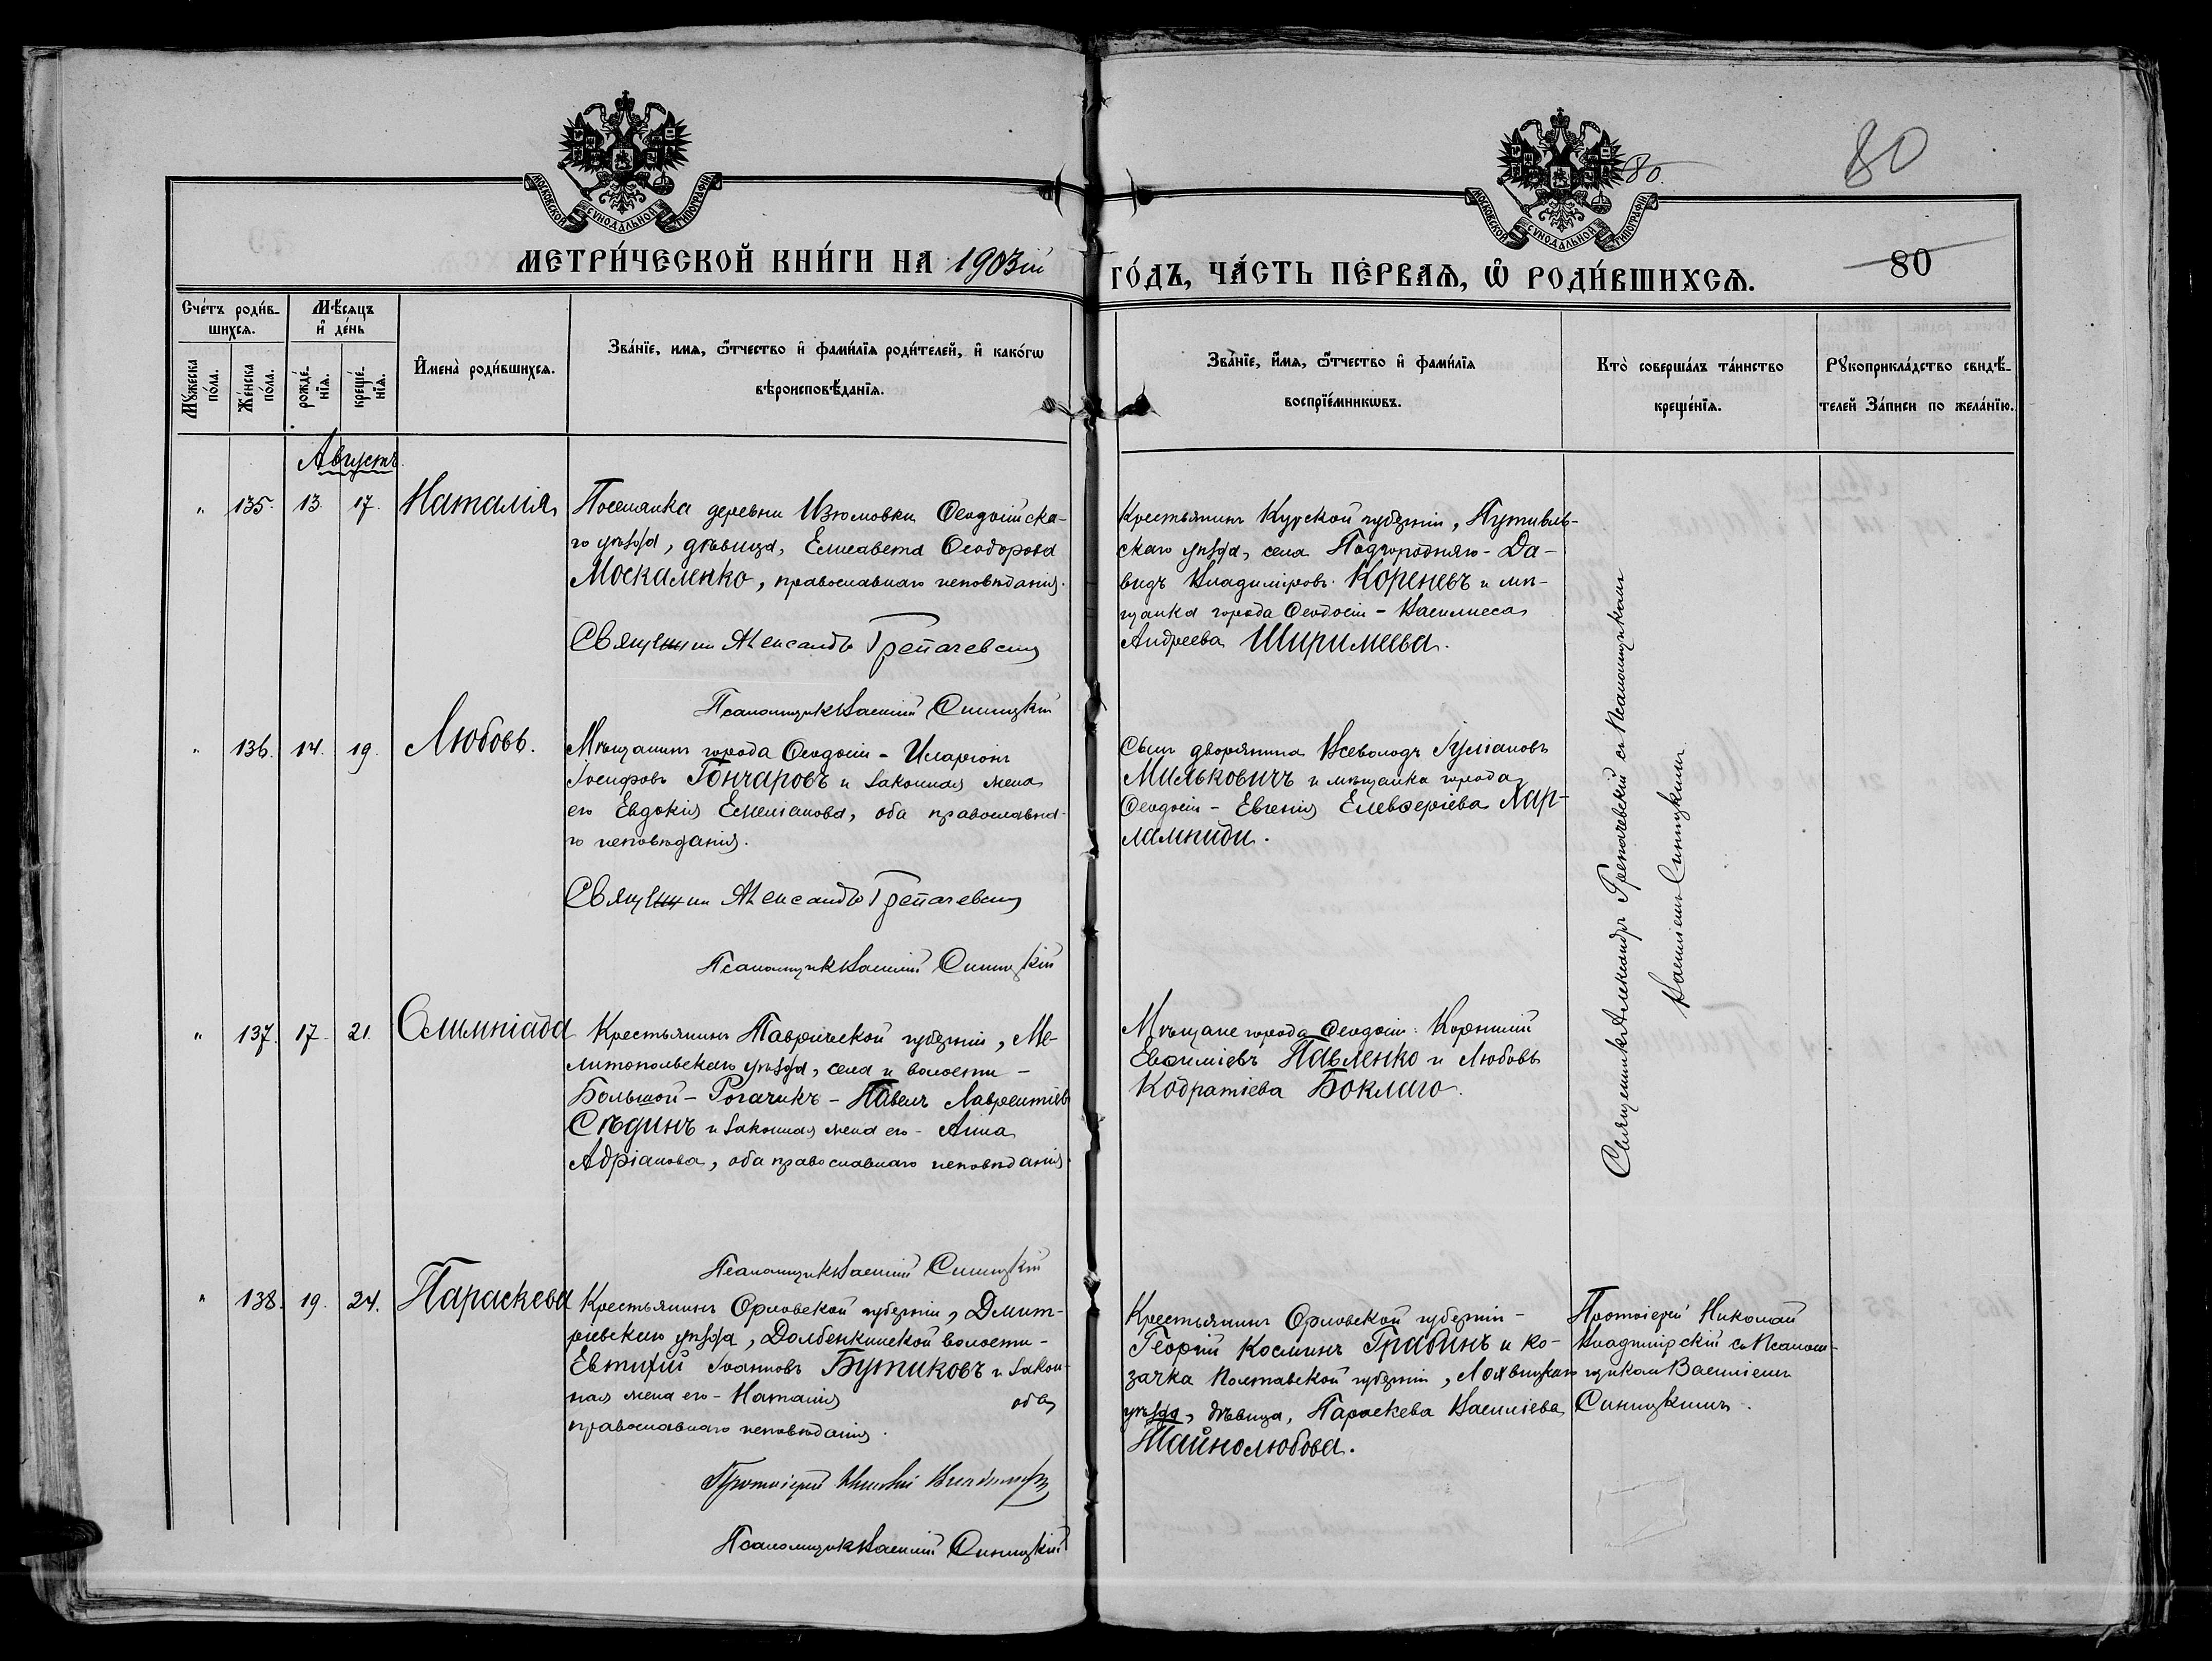 80
80.
МОСКОВСКОЙ СѴНОДАЛЬНОЙ ТИПОГРАФІИ
МОСКОВСКОЙ СѴНОДАЛЬНОЙ ТИПОГРАФІИ
МЕТРИ́ЧЕСКОЙ КНИ́ГИ НА 1903ій
ГО́ДЪ, ЧА́СТЬ ПЕ́РВАѦ, Ѡ҆ РОДИ́ВШИХСѦ.
80
Сче́тъ роди́в-
шихсѧ.
Мѣ́сяцъ
и҆ де́нь
Мꙋ́жеска по́ла.
Же́нска по́ла.
рожде́-
нїѧ.
креще́-
нїѧ.
И҆мена̀ роди́вшихсѧ.
Зва́нїе, имѧ, ѻ҆́тчество и҆ фами́лїѧ роди́телей, и҆ како́гѡ
вѣроисповѣ́данїѧ.
Зва́нїе, и҆́мѧ, ѻ҆́тчество и҆ фами́лїѧ
воспрїе́мникѡвъ.
Кто̀ соверша́лъ та́инство
креще́нїѧ.
Рꙋкоприкла́дство свидѣ́-
телей За́писи по жела́нїю.
Августъ.
" 135. 13. 17. Наталія
Поселянка деревни Изюмовки Ѳеодосійска-
го уѣзда, дѣвица, Елисавета Ѳеодорова
Москаленко, православнаго исповѣданія.
Священник Александръ Трепачевскій
Псаломщик Василій Синицкій
Крестьянинъ Курской губерніи, Путивль-
скаго уѣзда, села Подгородняго - Да-
видъ Владиміровъ Кореневъ и мѣ-
щанка города Ѳеодосіи - Василиса
Андреева Ширимеева.
Священникъ Александръ Трепачевскій съ Псаломщикомъ
Василіемъ Синицкимъ.
" 136. 14. 19. Любовь.
Мѣщанинъ города Ѳеодосіи - Иларіонъ
Іосифовъ Гончаровъ и законная жена
его Евдокія Емеліанова, оба православна-
го исповѣданія.
Священник Александръ Трепачевскій
Псаломщик Василій Синицкій
Сынъ дворянина Всеволодъ Іуліановъ
Мильковичъ и мѣщанка города
Ѳеодосіи - Евгенія Елевѳеріева Хар-
лампиди.
" 137. 17. 21. Олимпіада
Крестьянинъ Таврической губерніи, Ме-
литопольскаго уѣзда, села и волости -
Большой - Рогачикъ - Павелъ Лаврентіевъ
Сѣдинъ и законная жена его - Анна
Адріанова, оба православнаго исповѣданія.
Псаломщик Василій Синицкій
Мѣщане города Ѳеодосіи: Корнилій
Евѳиміевъ Павленко и Любовь
Кодратіева Боклаго.
" 138. 19. 24. Параскева
Крестьянинъ Орловской губерніи, Дмит-
ріевскаго уѣзда, Долбенкинской волости -
Евтихій Іоанновъ Бутиковъ и закон-
ная жена его - Наталія оба
православнаго исповѣданія.
Протоіерей Николай Владимірскій
Псаломщик Василій Синицкій
Крестьянинъ Орловской губерніи -
Георгій Косминъ Грабинъ и ко-
зачка Полтавской губерніи, Лохвицкаго
уѣзда, дѣвица, Параскева Василіева
Тайнолюбова.
Протоіерей Николай
Владимірскій съ Псалом-
щикомъ Василіемъ
Синицкимъ.